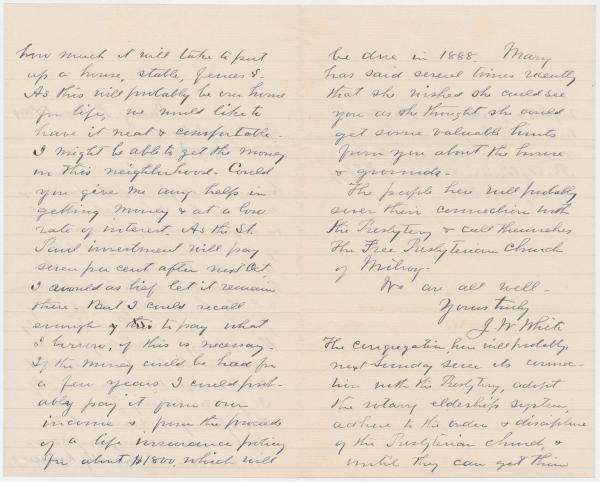 how much it will take to put
up a house, stable, fences &.
As this will probably be our home
for life, we would like to
have it neat & comfortable.
I might be able to get the money
in this neighborhood. Could
you give me any helps in
getting money & at a low
rate of interest. As the St.
Paul investment will pay
seven per cent after next Oct.
I would as lief let it remain
there. But I could recall
enough of this to pay what
I borrow, if this is necessary.
If the money could be had for
a few years I could prob-
ably pay it from our
income & from the proceeds
of a life insurance policy
for about $1800, which will
be due in 1888. Mary
has said several times recently
that she wished she could see
you as she thought she could
get some valuable hints
from you about the house
& grounds.
The people here will probably
sever their connection with
the Presbytery & call themselves
the Free Presbyterian Church
of Milroy.
We are all well.
Yours truly
J. W. White
The congregation here will probably,
next Sunday sever its connec-
tion with the Presbytery, adopt
the rotary eldership system,
adhere to the order & discipline
of the Presbyterian Church, &
until they can get them